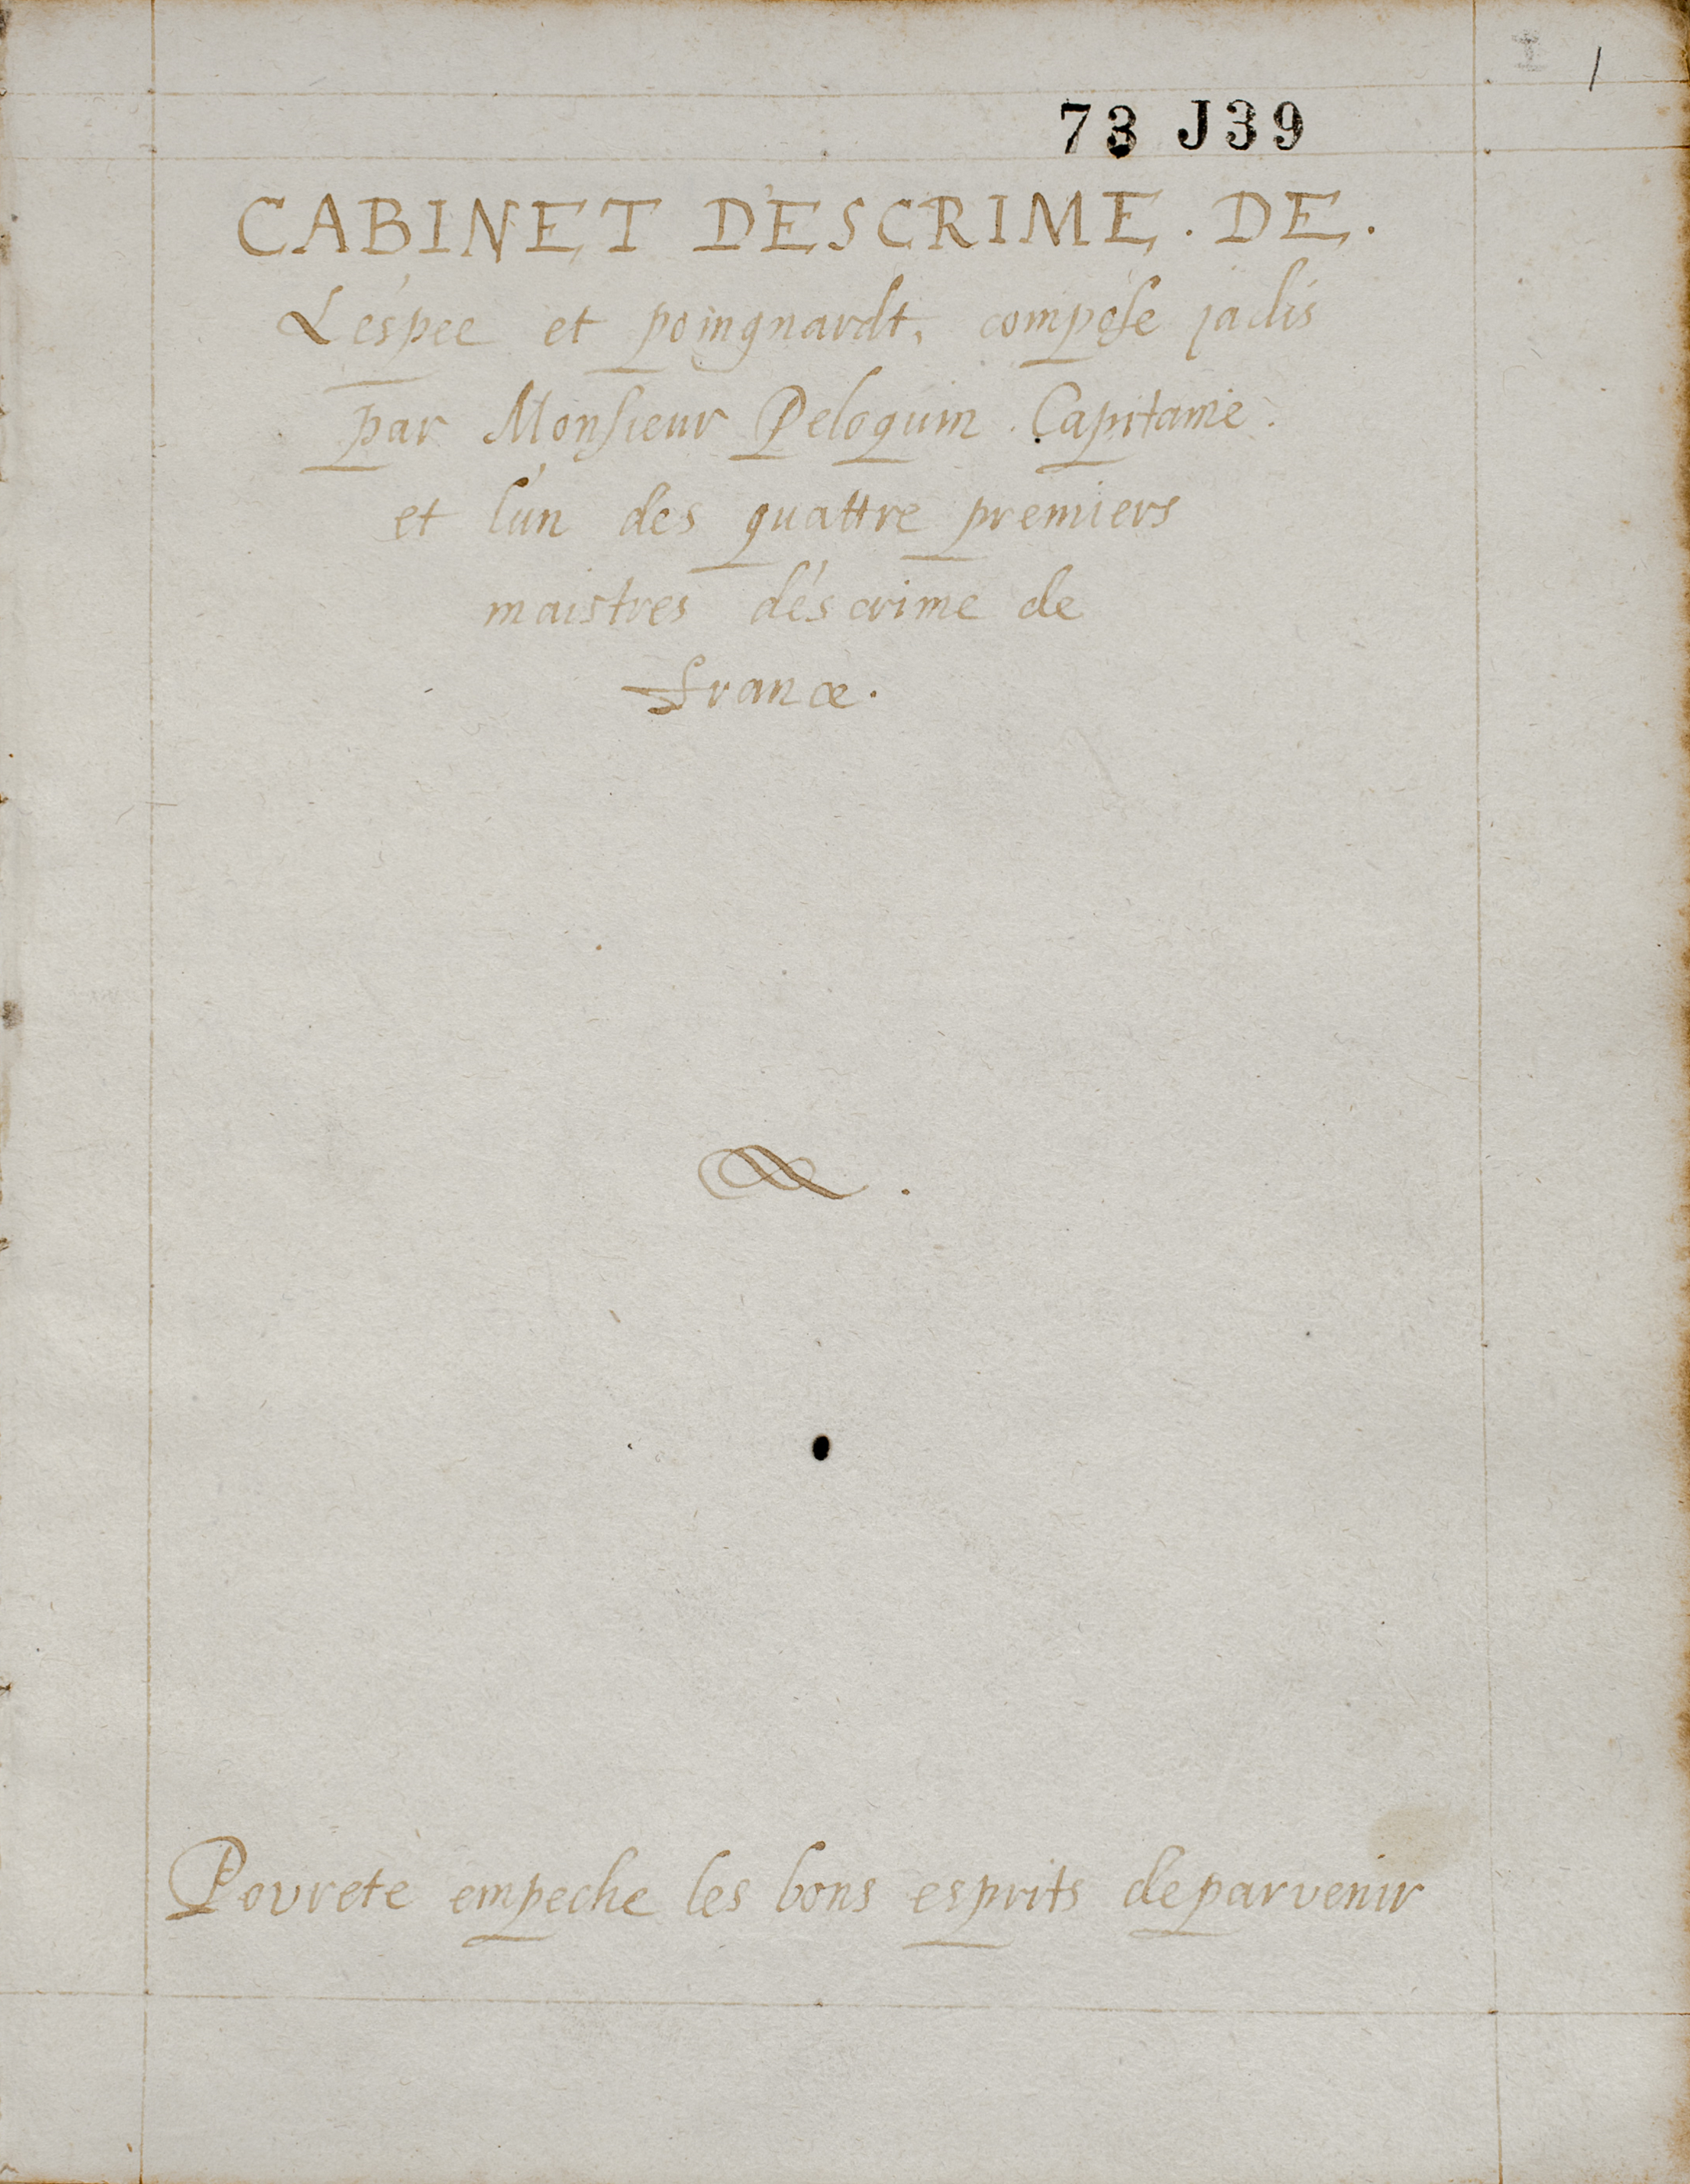 1
73 J39
CABINET D'ESCRIME. DE.
L'espee et poingnardt, compose jadis
par Monsieur Peloquin. Capitaine.
et l'un des quattre premiers
maistres d'escrime de
france.
Povrete empeche les bons esprits de parvenir